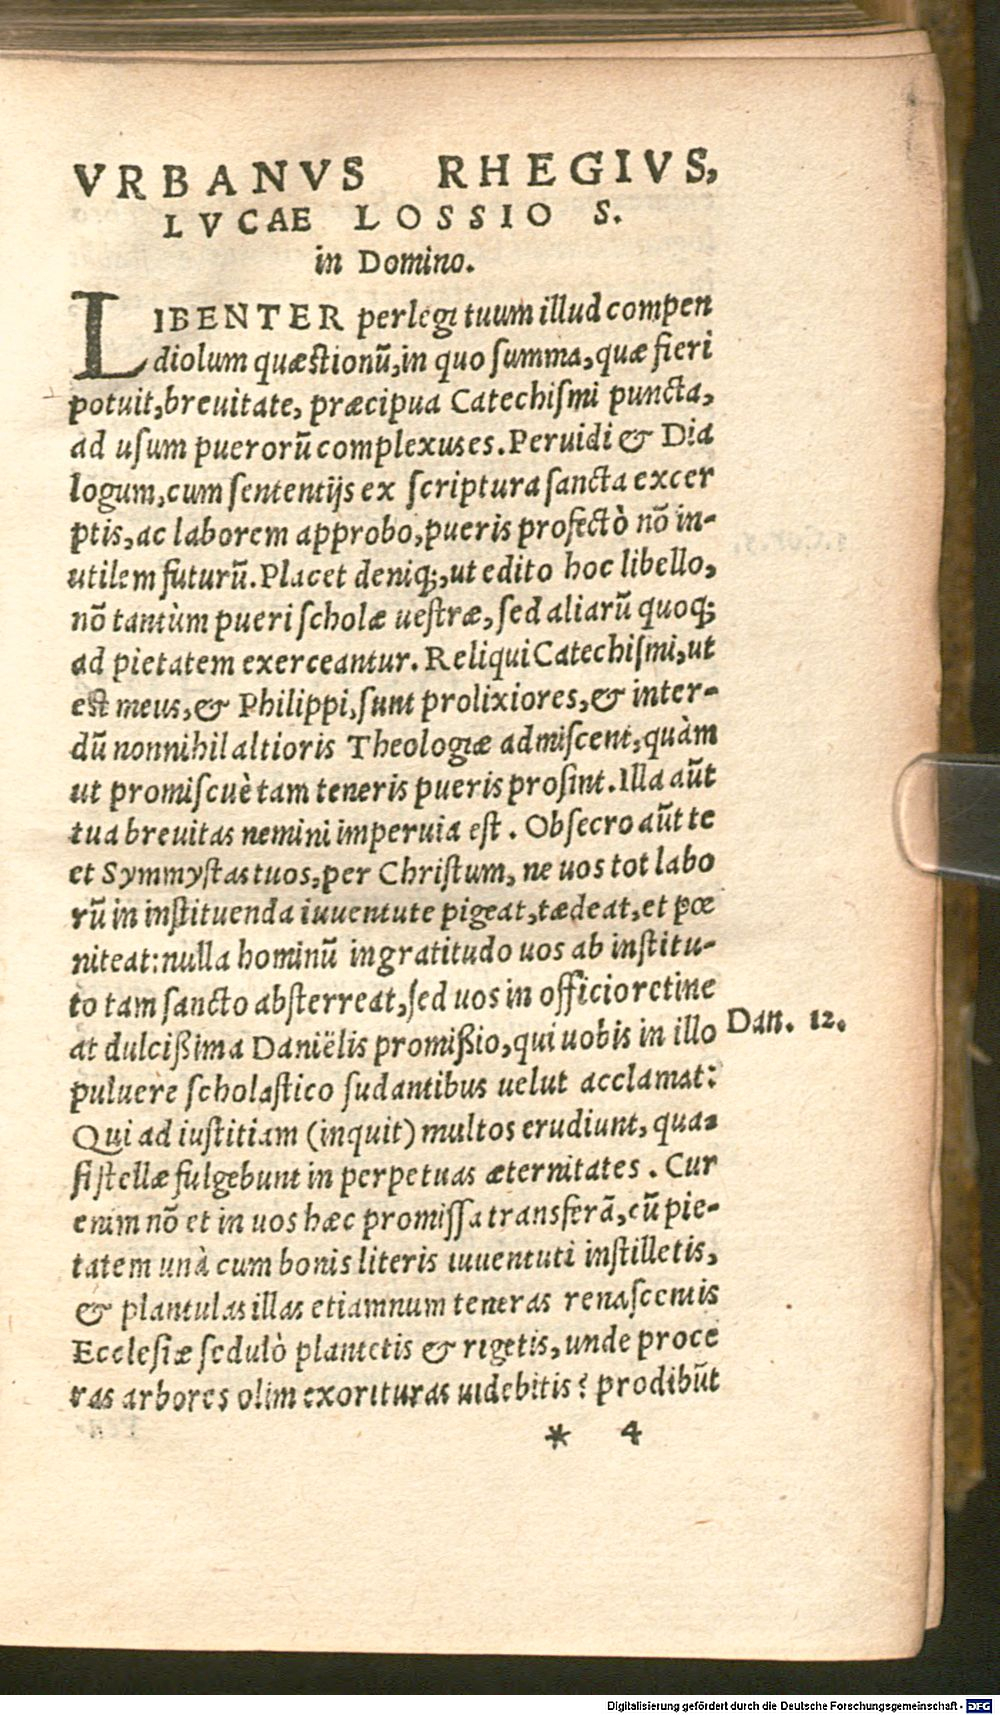 VRBANVS RHEGIVS,
LVCAE LOSSIO S.
in Domino.
LIBENTER perlegi tuum illud compen
diolum quæstionũ, in quo summa, quæ fieri
potuit, breuitate, præcipua Catechismi puncta,
ad usum puerorũ complexus es. Peruidi & Dia
logum, cum sententijs ex scriptura sancta excer
ptis, ac laborem approbo, pueris profectò nõ in-
utilem futurũ. Placet deniq;, ut edito hoc libello,
nõ tantùm pueri scholæ uestræ, sed aliarũ quoq;
ad pietatem exerceantur. Reliqui Catechismi, ut
est meus, & Philippi, sunt prolixiores, & inter-
dũ nonnihil altioris Theologiæ admiscent, quàm
ut promiscuè tam teneris pueris prosint. Illa aũt
tua breuitas nemini imperuia est. Obsecro aũt te
et Symmystas tuos, per Christum, ne uos tot labo
rũ in instituenda iuuentute pigeat, tædeat, et pœ
niteat: nulla hominũ ingratitudo uos ab institu-
to tam sancto absterreat, sed uos in officio retine
at dulcißima Daniëlis promißio, qui uobis in illo
Dan. 12.
puluere scholastico sudantibus uelut acclamat:
Qui ad iustitiam (inquit) multos erudiunt, qua-
si stellæ fulgebunt in perpetuas æternitates. Cur
enim nõ et in uos hæc promissa transferã, cũ pie-
tatem unà cum bonis literis iuuentuti instilletis,
& plantulas illas etiamnum teneras renascentis
Ecclesiæ sedulò plantetis & rigetis, unde proce
ras arbores olim exorituras uidebitis? prodibũt
* 4
Digitalisierung gefördert durch die Deutsche Forschungsgemeinschaft - DFG